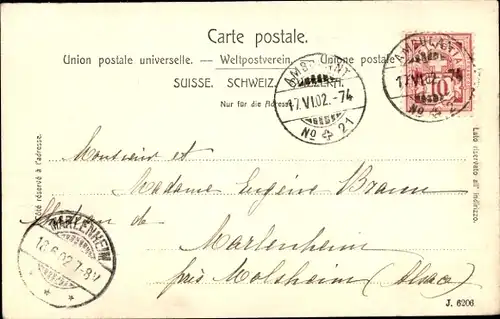 Carte postale.
Union postale universelle. — Weltpostverein. — Unione postale
SUISSE. SCHWEIZ.
Nur für die Adresse.
AMBULANT
17.VI.02.-74
No 21
AMBULANT
17.VI.02.-74
No 21
10
Côté réservé à l'adresse.
Lato riservato all' indirizzo.
Monsieur et
Madame Eugène Braun
de
Marlenheim
près Molsheim (Alsace)
MARLENHEIM
18.6.02.7-8V
J. 6206